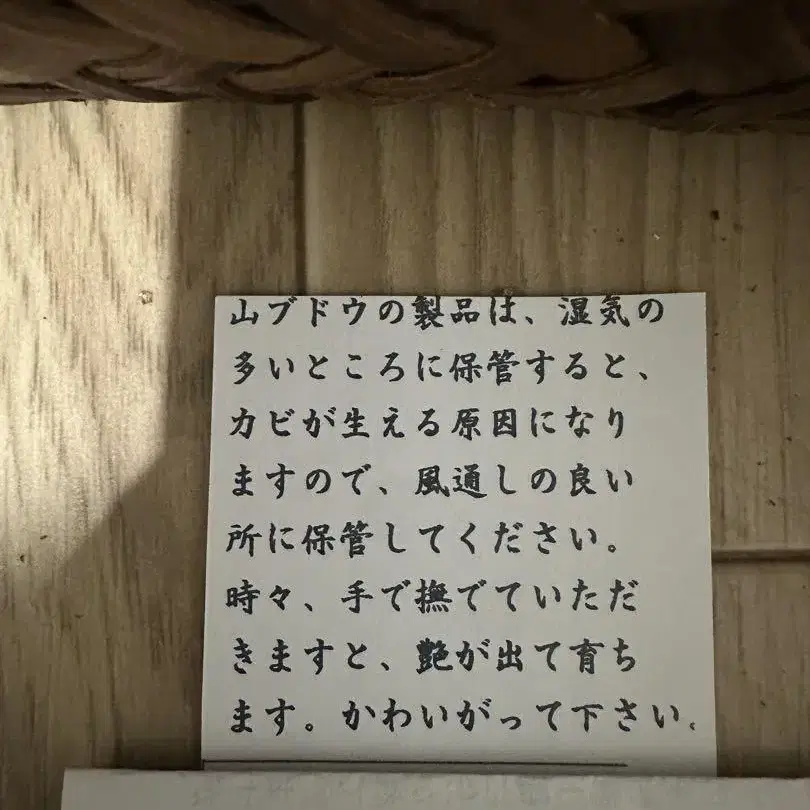 山ブドウの製品は、湿気の
多いところに保管すると、
カビが生える原因になり
ますので、風通しの良い
所に保管してください。
時々、手で撫でていただ
きますと、艶が出て育ち
ます。かわいがって下さい。